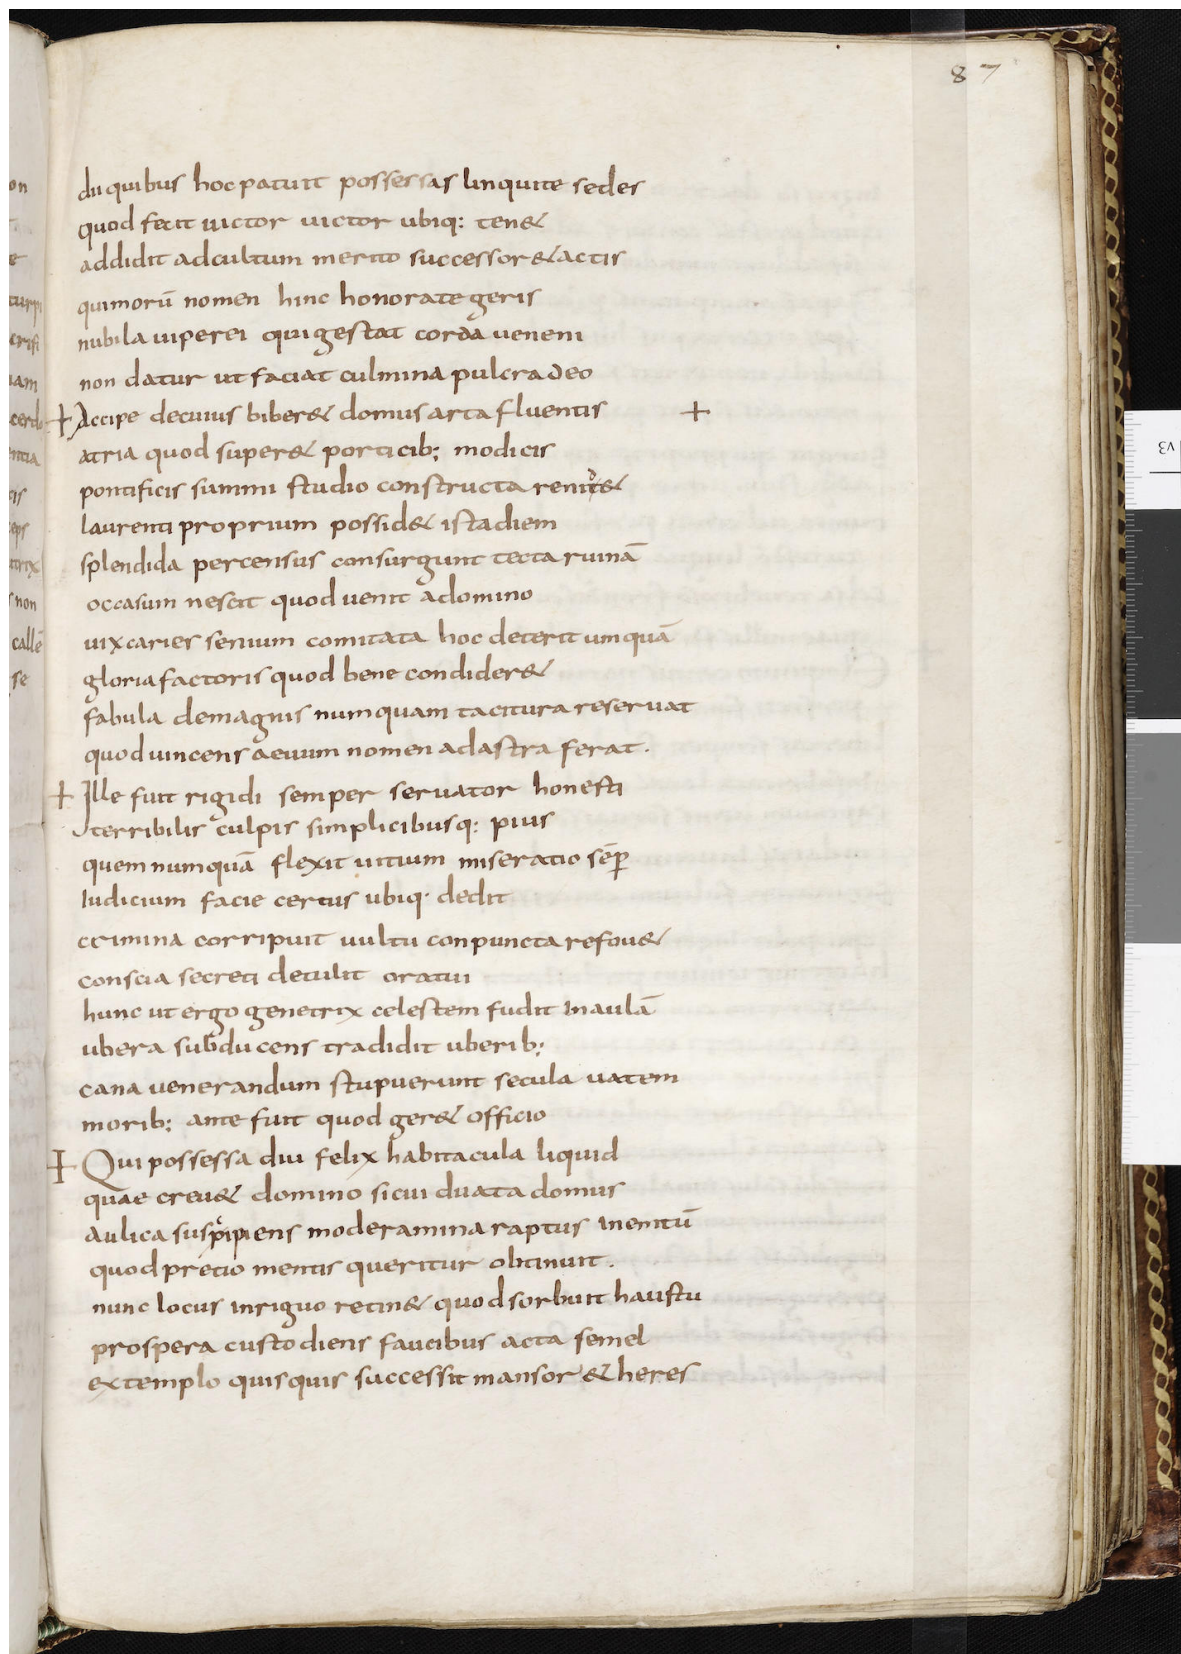 87
dii quibus hoc patuit possessas linquite sedes
quod fecit uictor uictor ubiq: ten&
addidit adcultum merito successor & actis
quimorū nomen hinc honorate geris
nubila uiperei qui gestat corda ueneni
non datur ut faciat culmina pulcra deo
+ Accipe decuius biber& domus arta fluentis +
atria quod super& porticib; modicis
pontificis summi studio constructa
laurenti proprium possid& ista diem
splendida percensus consurgunt tecta ruinā
occasum nescit quod uenit adomino
uix caries senium comitata hoc deterit umquā
gloria factoris quod bene condider&
fabula demagnis numquam tacitura reseruat
quod uincens aeuum nomen ad astra ferat.
+ Ille fuit rigidi semper seruator honesti
terribilis culpis simplicibusq: pius
quem numquā flexit uitium miseratio sēp
Iudicium facie certus ubiq· dedit
crimina corripuit uultu conpuncta refou&
conscia secreti detulit oratui
hunc ut ergo genetrix celestem fudit inaulā
ubera subducens tradidit uberib;
cana uenerandum stupuerunt secula uatem
morib; ante fuit quod ger& officio
+ Qui possessa diu felix habitacula liquid
quae creu& domino sicui duata domus
aulica moderamina raptus inemtū
quod pretio mentis queritur obtinuit.
nunc locus inriguo retin& quod sorbuit haustu
prospera custodiens faucibus acta semel
extemplo quisquis successit mansor & heres